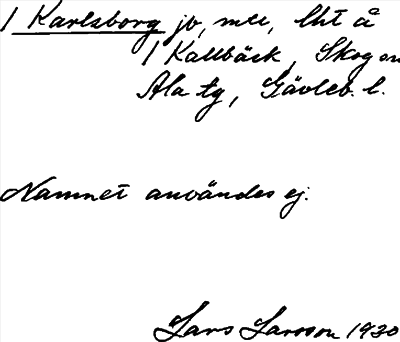 1 Karlsborg jo, mee, lht å
1 Kallbäck, Skog sn
Ala tg, Gävleb. l.
Namnet användes ej.
Lars Larsson 1930